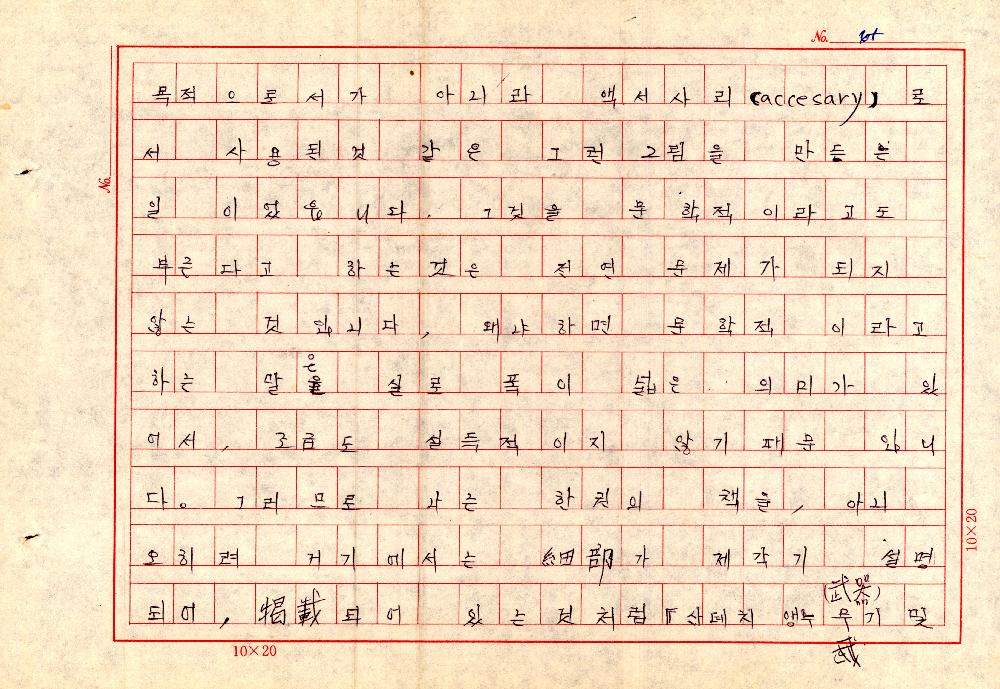 No. 
목적으로서가 아니라 액서사리(accesary)로
서 사용된것 같은 그런 그림을 만드는
일이었읍니다. 그것을 문학적이라고도
부른다고 하는것은 전연 문제가 되지
않는 것 입니다, 왜냐하면 문학적 이라고
하는 말은 실로 폭이 넓은 의미가 있
어서, 조금도 설득적이지 않기 때문 입니
다。그러므로 나는 한권의 책을, 아니
오히려 거기에서는 細部가 제각기 설명
되어, 揭載되어 있는것처럼 『산데치 앵두 무기 및
(武器)
No.
10×20
10×20